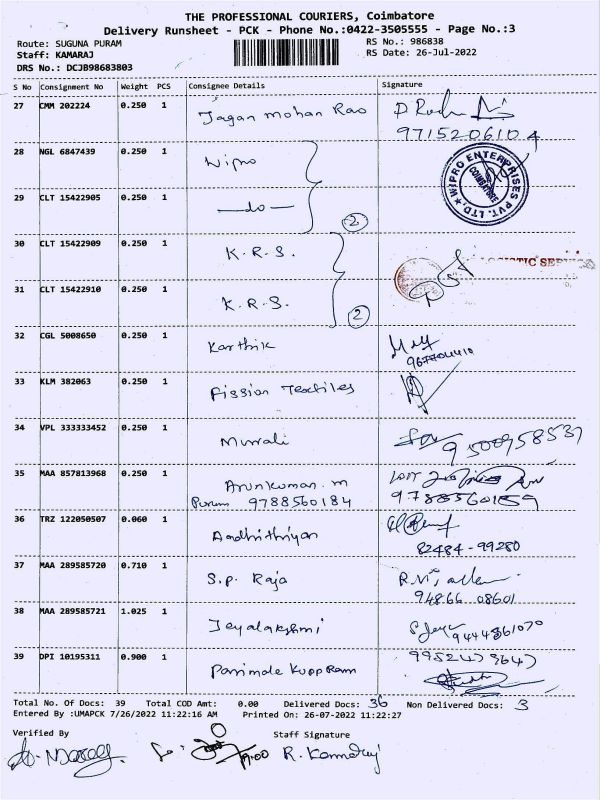 THE PROFESSIONAL COURIERS, Coimbatore
Delivery Runsheet - PCK - Phone No.:0422-3505555 - Page No.:3
Route: SUGUNA PURAM RS No.: 986838
Staff: KAMARAJ RS Date: 26-Jul-2022
DRS No.: DCJB98683803
S No Consignment No Weight PCS Consignee Details Signature
27 CMM 202224 0.250 1 Jagan mohan Rao
9715206104
28 NGL 6847439 0.250 1 Wipro
WIPRO ENTERPRISES PVT. LTD. COIMBATORE
29 CLT 15422905 0.250 1 —do—
2
30 CLT 15422909 0.250 1 K.R.S.
31 CLT 15422910 0.250 1 K.R.S.
2
32 CGL 5008650 0.250 1 Karthik
33 KLM 382063 0.250 1 Fission Textiles
34 VPL 333333452 0.250 1 Murali
35 MAA 857813968 0.250 1 Arunkumar. m
9788560184
36 TRZ 122050507 0.060 1 Aadhithiyan
82484-99280
37 MAA 289585720 0.710 1 S.P. Raja
94866 08601
38 MAA 289585721 1.025 1 Jeyalakshmi
9444861070
39 DPI 10195311 0.900 1
Total No. Of Docs: 39 Total COD Amt: 0.00 Delivered Docs: 36 Non Delivered Docs: 3
Entered By :UMAPCK 7/26/2022 11:22:16 AM Printed On: 26-07-2022 11:22:27
Verified By Staff Signature
R. Kamaraj